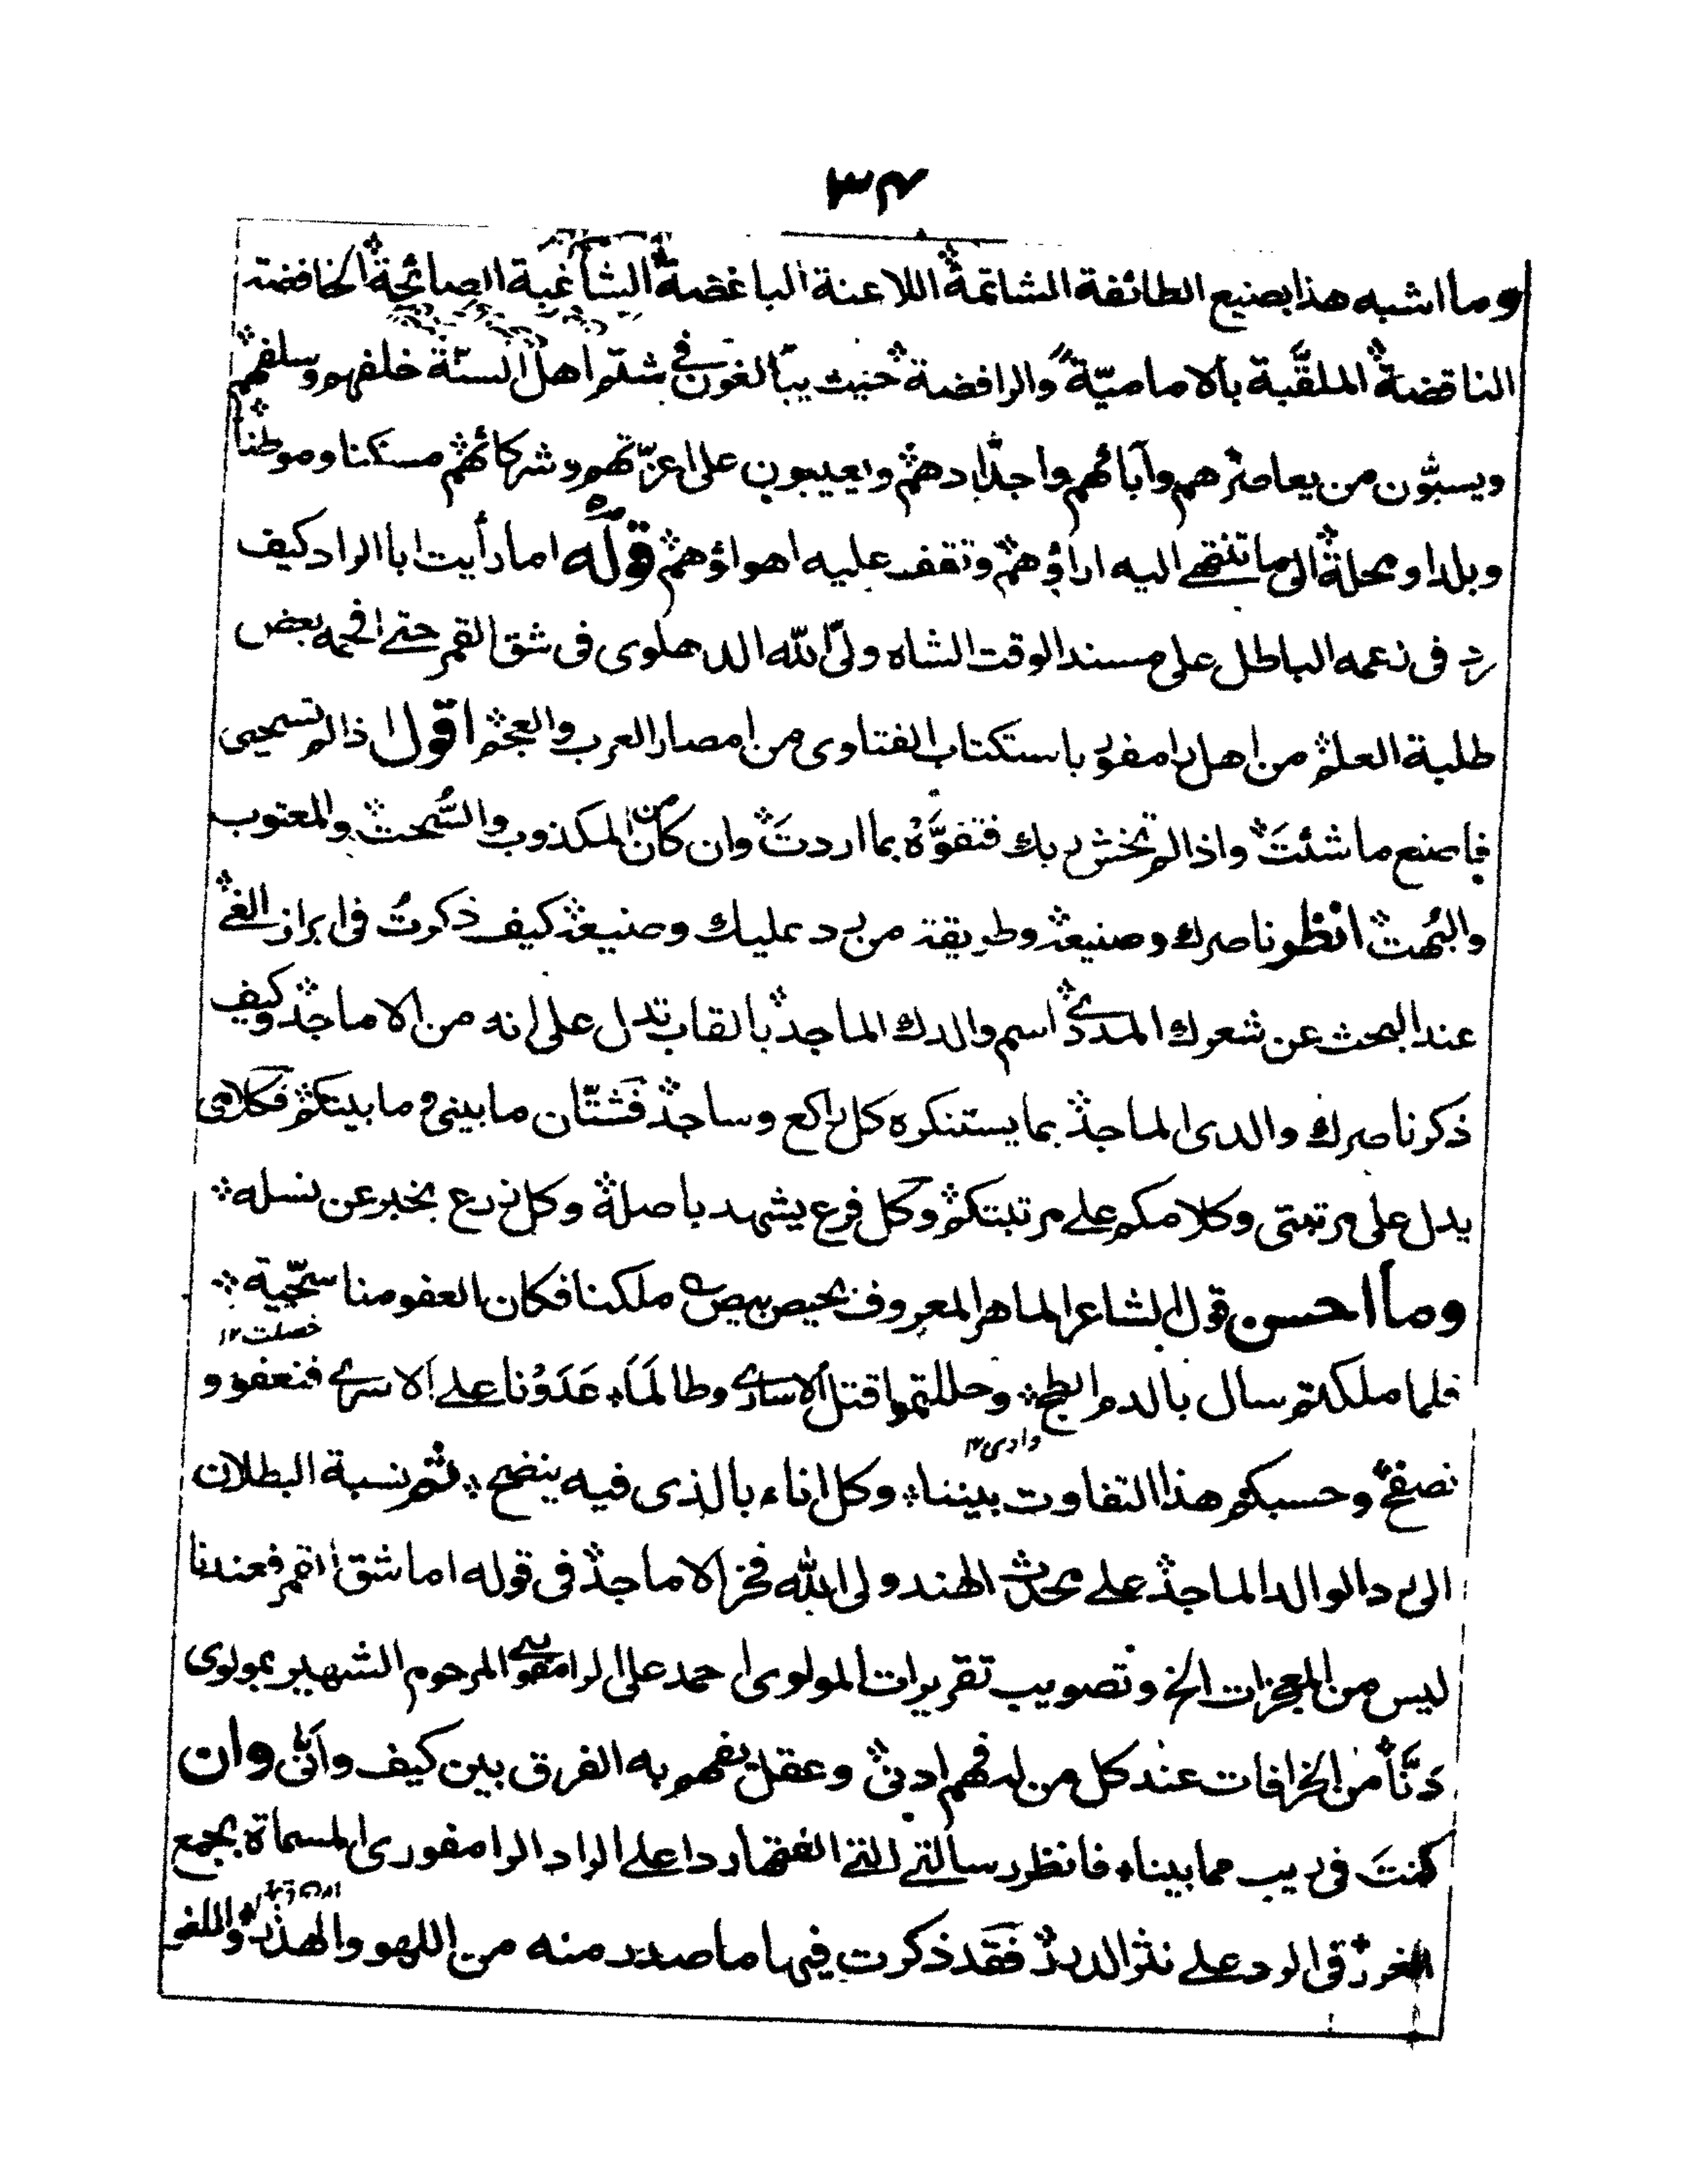 ٣٤
وما اشبه هذا بصنيع الطائفة الشاتمة اللاعنة الباغضة الشاغبة الصائحة الخافضة
الناقضة الملقّبة بالاماميّة والرافضة حيث يبالغون في شتم اهل السنّة خلفهم وسلفهم
ويسبّون من يعاصرهم وآبائهم واجدادهم ويعيبون على اعزّتهم وشركائهم مسكنا وموطنا
وبلدا ومحلة الى ما تنتهي اليه اراؤهم وتقف عليه اهواؤهم قوله اما رأيت ابا الراد كيف
رد فى زعمه الباطل على مسند الوقت الشاه ولىّ الله الدهلوى فى شق القمر حتى افحمه بعض
طلبة العلم من اهل رامفور باستكتاب الفتاوى من امصار العرب والعجم اقول اذا لم تستحيى
فاصنع ما شئتَ واذا لم تخش ربك فتفوَّهْ بما اردتَ وان كان من المكذوب والسُّحت والمعتوب
والبُهت انظر ناصرك وصنيعه وطريقة من يرد عليك وصنيعه كيف ذكرتُ فى ابراز الغى
عند البحث عن شعرك المدى اسم والدك الماجد بالقاب تدل على انه من الاماجد وكيف
ذكر ناصرك والدى الماجد بما يستنكره كل راكع وساجد فشتّان ما بينى وما بينكم فكلامى
يدل على مرتبتى وكلامكم على مرتبتكم وكل فرع يشهد باصله وكل زرع يخبر عن نسله
وما احسن قول الشاعر الماهر المعروف بحيص بيص ملكنا فكان العفو منا سجّية
خصلت ١٢
فلما ملكتم سال بالدم ابطح وحللتموا قتل الاسارى وطالمَا غَدَوْنا على الاسرى فنعفو و
وادى ١٢
نصفح وحسبكم هذا التفاوت بيننا وكل اناء بالذى فيه ينضح ثم نسبة البطلان
الى رد الوالد الماجد على محدث الهند ولى الله فخر الاماجد فى قوله اما شق القمر فعندنا
ليس من المعجزات الخ وتصويب تقريرات المولوى احمد على الرامفورى المرحوم الشهير بمولوى
دَنّا من الخرافات عند كل من له فهم ادنى وعقل يفهم به الفرق بين كيف وأنّى وان
كنتَ فى ريب مما بينا فانظر رسالتى التى الفتها ردا على الراد الرامفورى المسماة بجمع
الغرر فى الرد على نثر الدرر فقد ذكرت فيها ما صدر منه من اللهو والهذر واللغو